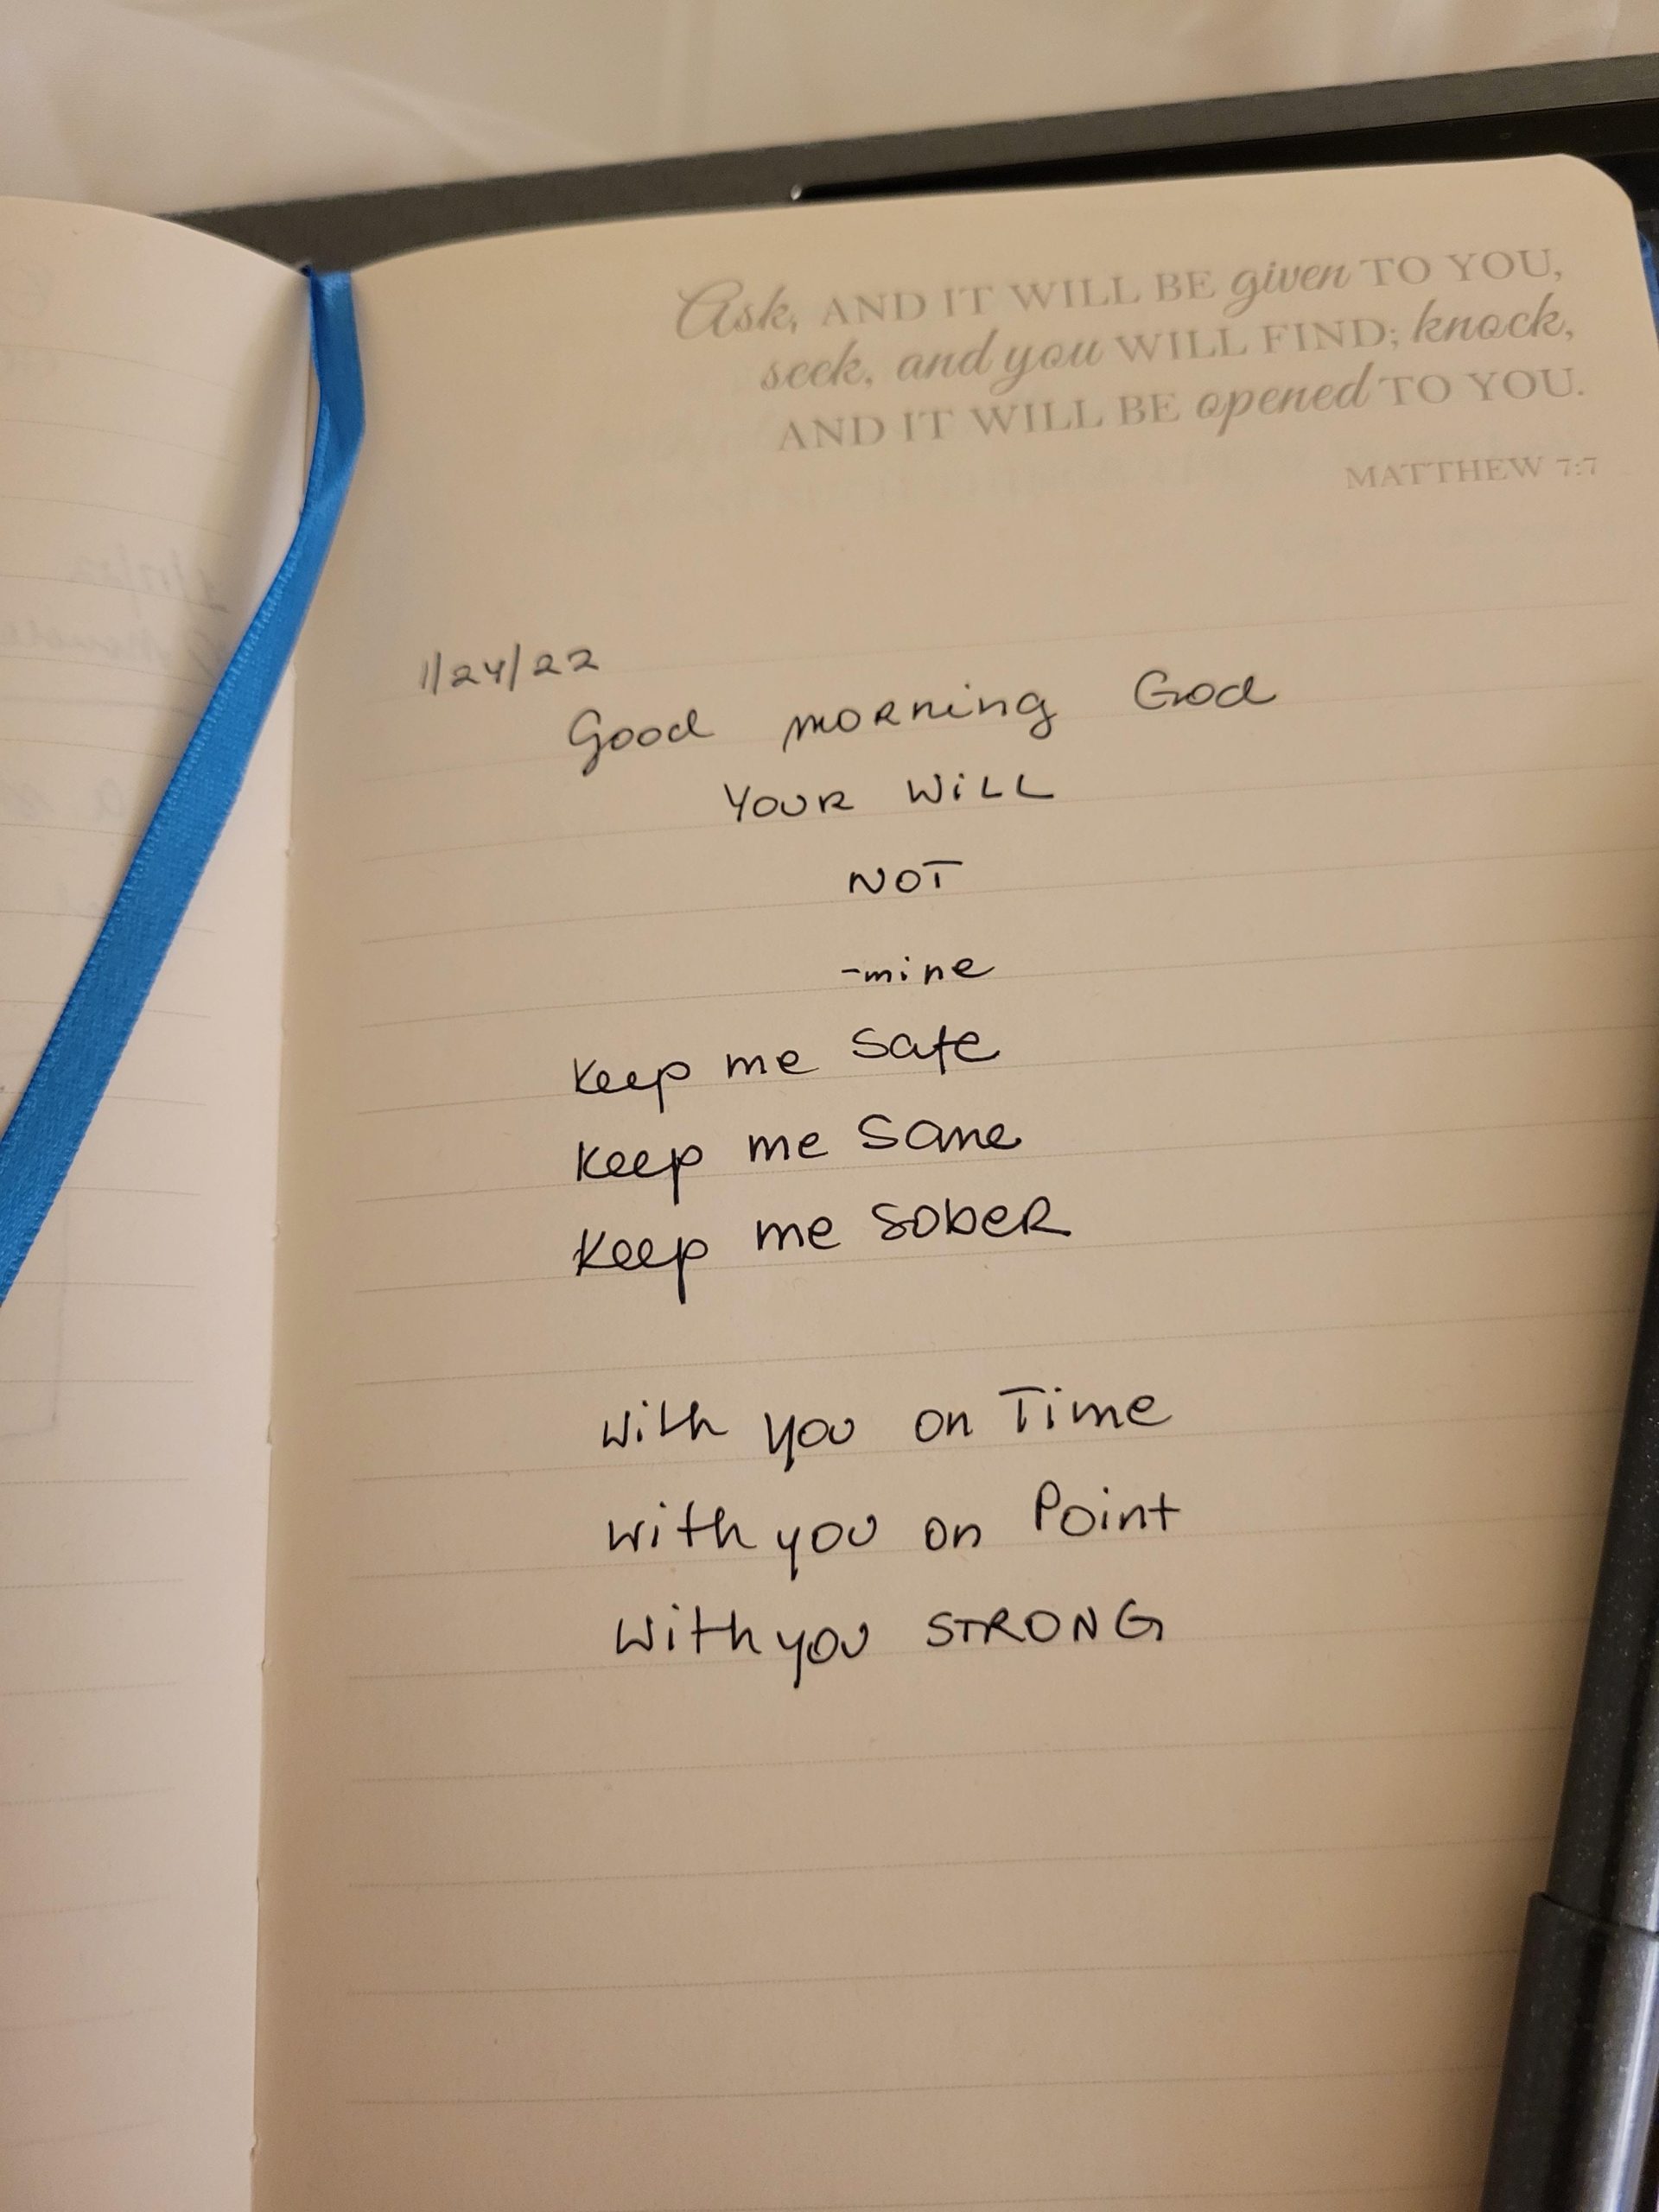 Ask, AND IT WILL BE given TO YOU,
seek, and you WILL FIND; knock,
AND IT WILL BE opened TO YOU.
MATTHEW 7:7
1/24/22
Good morning God
YOUR WiLL
NOT
-mine
Keep me Safe
Keep me Sane
Keep me SobeR
With you on Time
With you on Point
With you STRONG